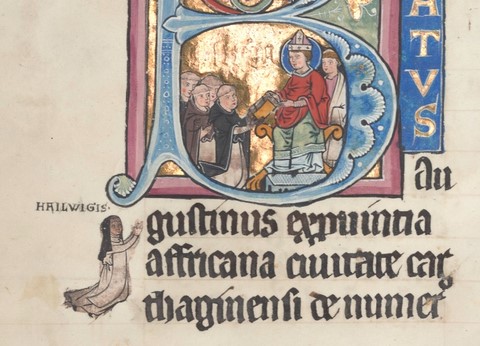 ATVS
Au
HAILWIGIS·
gustinus expuintia
affricana ciuitate car
thaginensi de numer